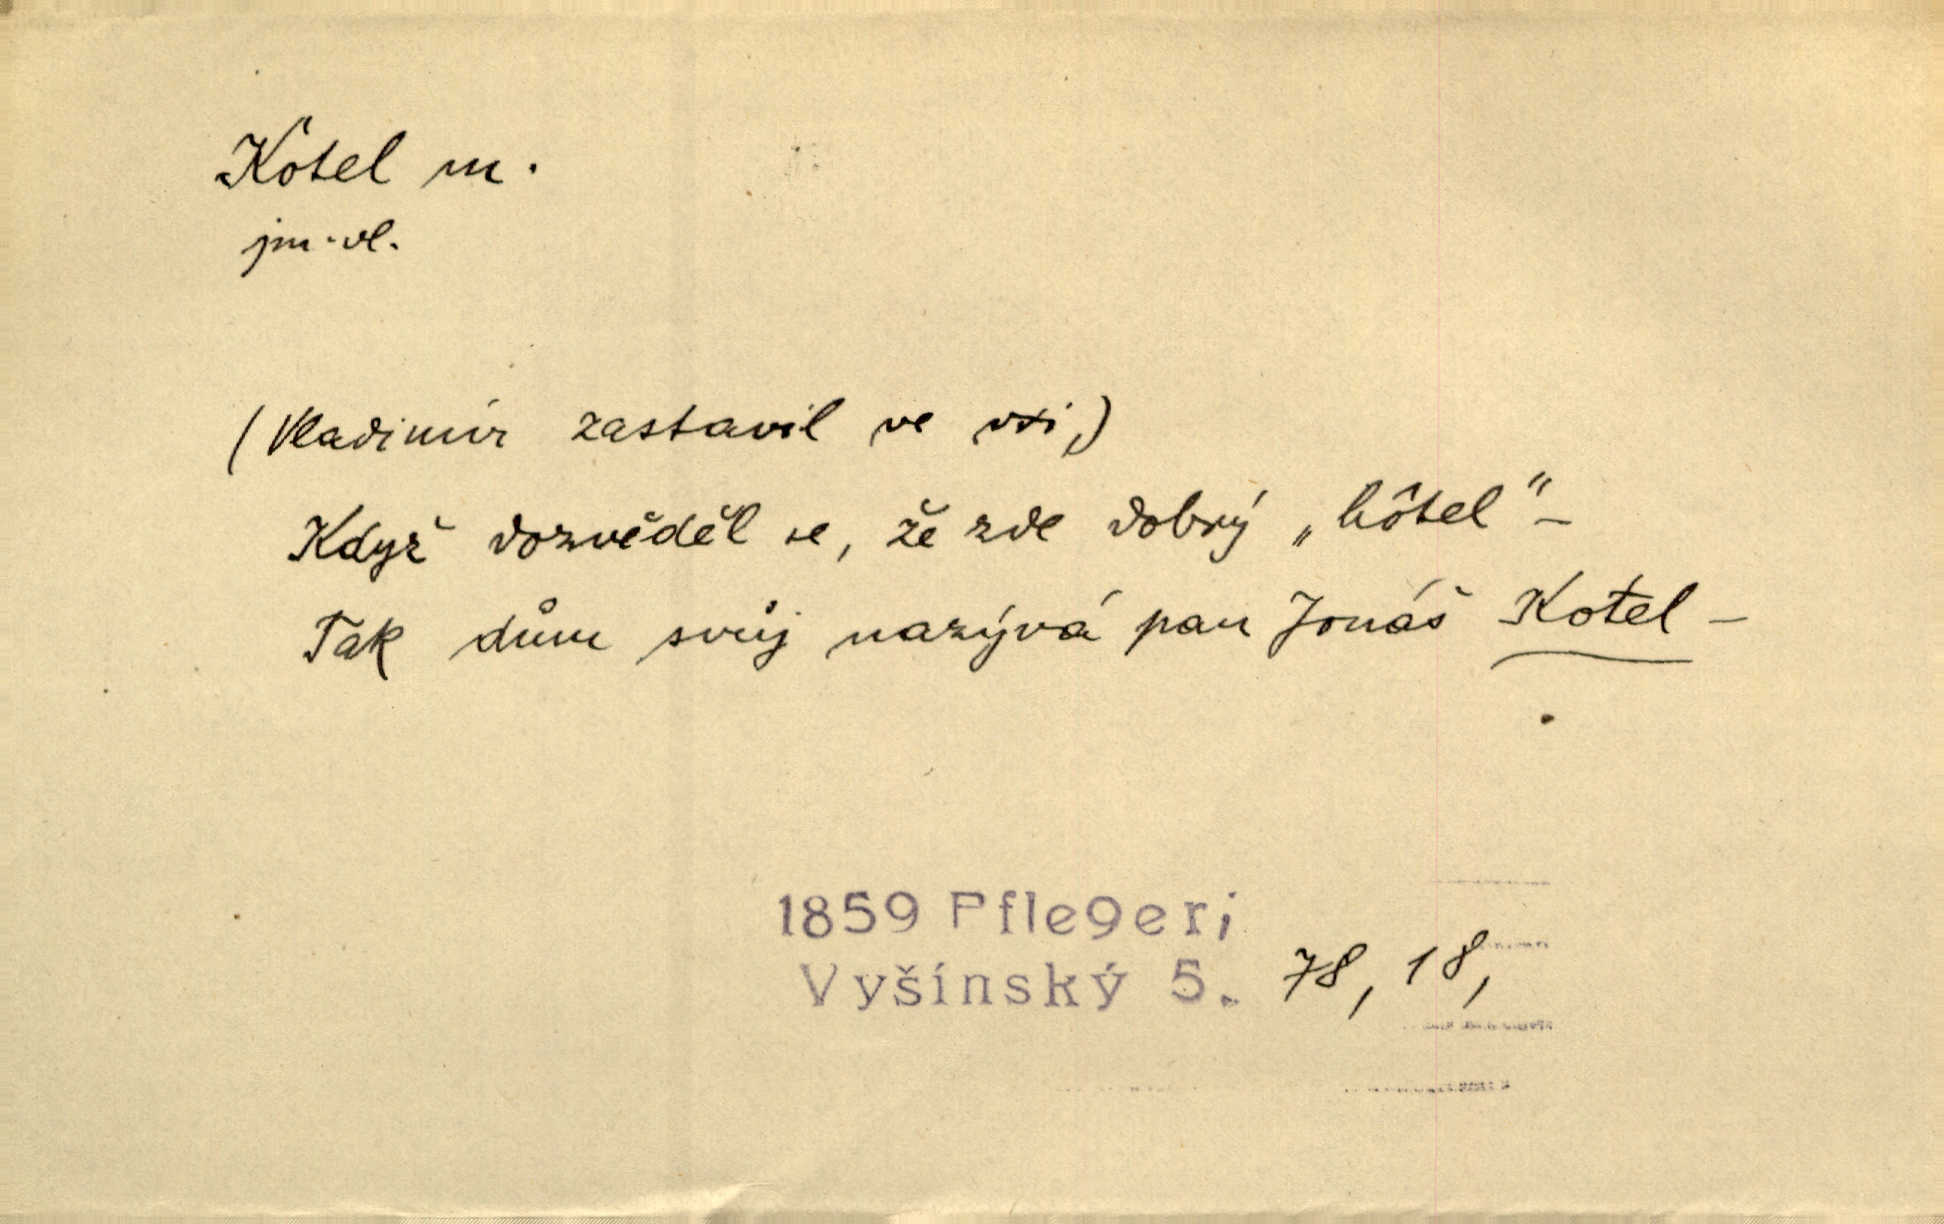 Kotel m.
jm. vl.
(Vladimír zastavil ve vsi,)
Když dozvěděl se, že zde dobrý „hôtel“ –
Tak dům svůj nazývá pan Jonáš Kotel –
1859 Pfleger;
Vyšínský 5. 78, 18,